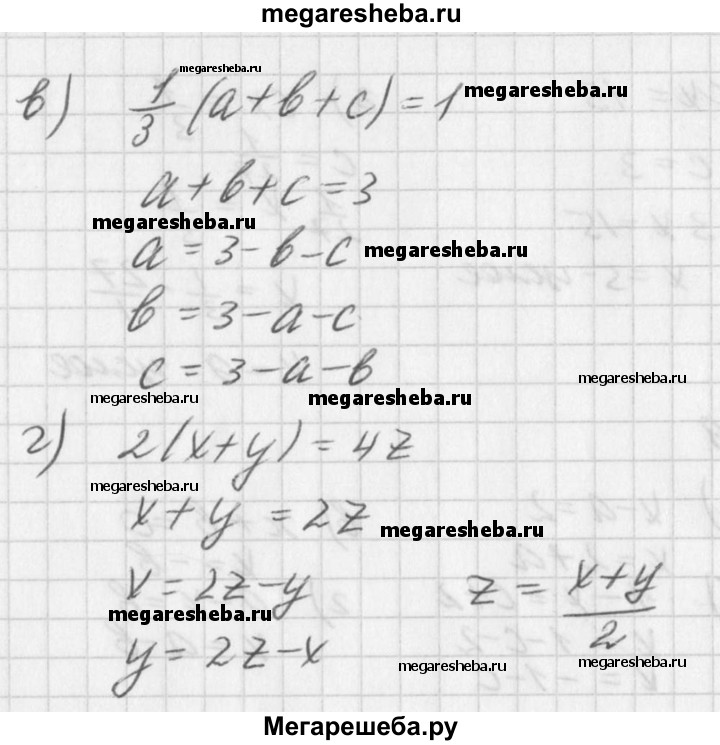 megaresheba.ru
megaresheba.ru
в) 1/3 (a+b+c)=1 megaresheba.ru
a+b+c=3
megaresheba.ru
a=3-b-c megaresheba.ru
b=3-a-c
c=3-a-b
megaresheba.ru megaresheba.ru megaresheba.ru
г) 2(x+y)=4z
megaresheba.ru
x+y=2z megaresheba.ru
x=2z-y z=(x+y)/2
megaresheba.ru
y=2z-x megaresheba.ru megaresheba.ru
Мегарешеба.ру